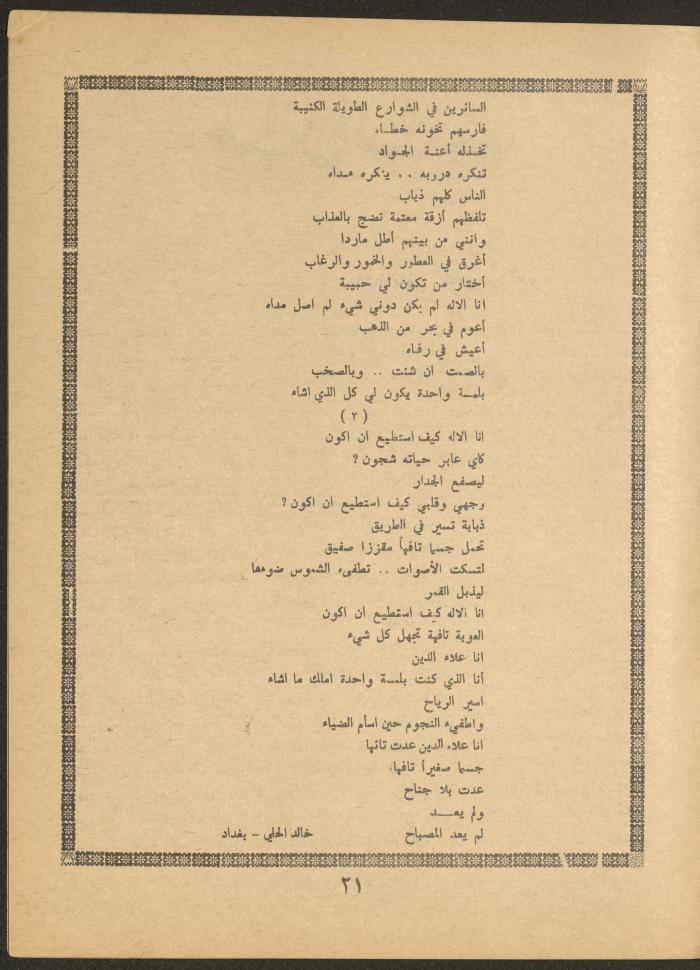 السائرين في الشوارع الطويلة الكئيبة
فارسهم تخونه خطــاه
تخـذله أعنـة الجـواد
تنكره دروبه . . ينكره مـداه
الناس كلهم ذباب
تلفظهم أزقة معتمة تضج بالعذاب
وانني من بينهم أطل ماردا
أغرق في العطور والخمور والرغاب
أختار من تكون لي حبيبة
انا الاله لم يكن دوني شيء لم اصل مداه
أعوم في بحر من الذهب
أعيش في رفاه
بالصمت ان شئت .. وبالصخب
بلمسة واحدة يكون لي كل الذي اشاء
( ٢ )
انا الاله كيف استطيع ان اكون
كاي عابر حياته شجون ؟
ليصفع الجدار
وجهي وقلبي كيف استطيع ان اكون ؟
ذبابة تسير في الطريق
تحمل جسما تافهاً مقززا صفيق
لتسكت الأصوات .. تطفيء الشموس ضوءها
ليذبل القمر
انا الاله كيف استطيع ان اكون
العوبة تافهة تجهل كل شيء
انا علاء الدين
أنا الذي كنت بلمسة واحدة املك ما اشاء
اسير الرياح
واطفيء النجوم حين اسأم الضياء
انا علاء الدين عدت تائها
جسما صغيراً تافها
عدت بلا جناح
ولم يعــــد
لم يعد المصباح
خالد الحلي – بغداد
٢١